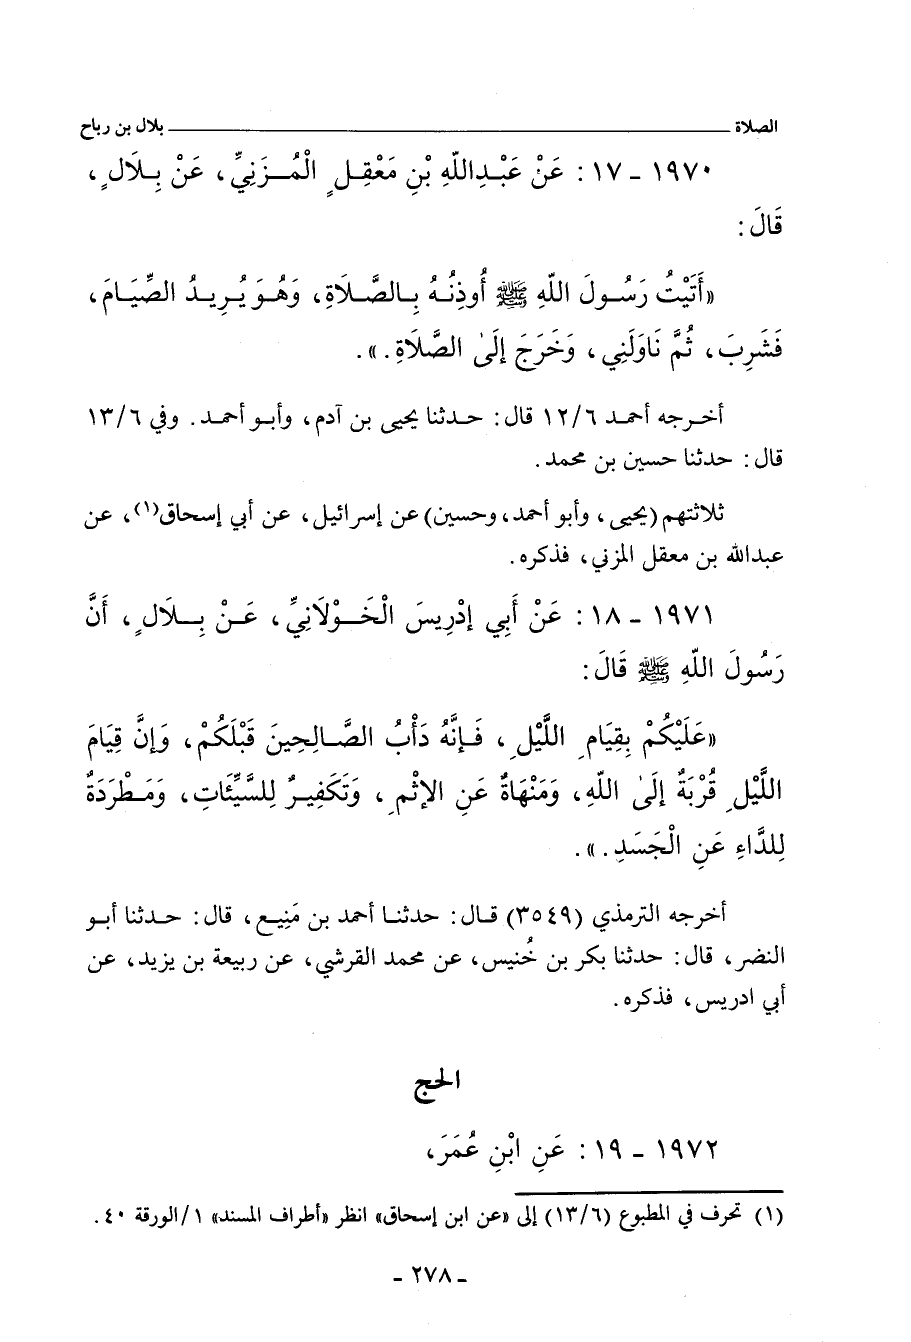 الصلاة ــــــــــــــــــــ بلال بن رباح
١٩٧٠ ـ ١٧ : عَنْ عَبْدِاللّهِ بْنِ مَعْقِلٍ الْمُزَنِيِّ، عَنْ بِلَالٍ،
قَالَ:
«أَتَيْتُ رَسُولَ اللّهِ ﷺ أُوذِنُهُ بِالصَّلَاةِ، وَهُوَ يُرِيدُ الصِّيَامَ،
فَشَرِبَ، ثُمَّ نَاوَلَنِي، وَخَرَجَ إِلَىٰ الصَّلَاةِ.».
أخرجه أحمد ١٢/٦ قال: حدثنا يحيى بن آدم، وأبو أحمد. وفي ١٣/٦
قال: حدثنا حسين بن محمد.
ثلاثتهم (يحيى، وأبو أحمد، وحسين) عن إسرائيل، عن أبي إسحاق(١)، عن
عبدالله بن معقل المزني، فذكره.
١٩٧١ ـ ١٨ : عَنْ أَبِي إِدْرِيسَ الْخَوْلَانِيِّ، عَنْ بِلَالٍ، أَنَّ
رَسُولَ اللّهِ ﷺ قَالَ:
«عَلَيْكُمْ بِقِيَامِ اللَّيْلِ، فَإِنَّهُ دَأْبُ الصَّالِحِينَ قَبْلَكُمْ، وَإِنَّ قِيَامَ
اللَّيْلِ قُرْبَةٌ إِلَىٰ اللّهِ، وَمَنْهَاةٌ عَنِ الإِثْمِ، وَتَكْفِيرٌ لِلسَّيِّئَاتِ، وَمَطْرَدَةٌ
لِلدَّاءِ عَنِ الْجَسَدِ.».
أخرجه الترمذي (٣٥٤٩) قال: حدثنا أحمد بن مَنِيع، قال: حدثنا أبو
النضر، قال: حدثنا بكر بن خُنيس، عن محمد القرشي، عن ربيعة بن يزيد، عن
أبي ادريس، فذكره.
الحج
١٩٧٢ ـ ١٩ : عَنِ ابْنِ عُمَرَ،
(١) تحرف في المطبوع (١٣/٦) إلى «عن ابن إسحاق» انظر «أطراف المسند» ١/الورقة ٤٠.
ـ ٢٧٨ ـ